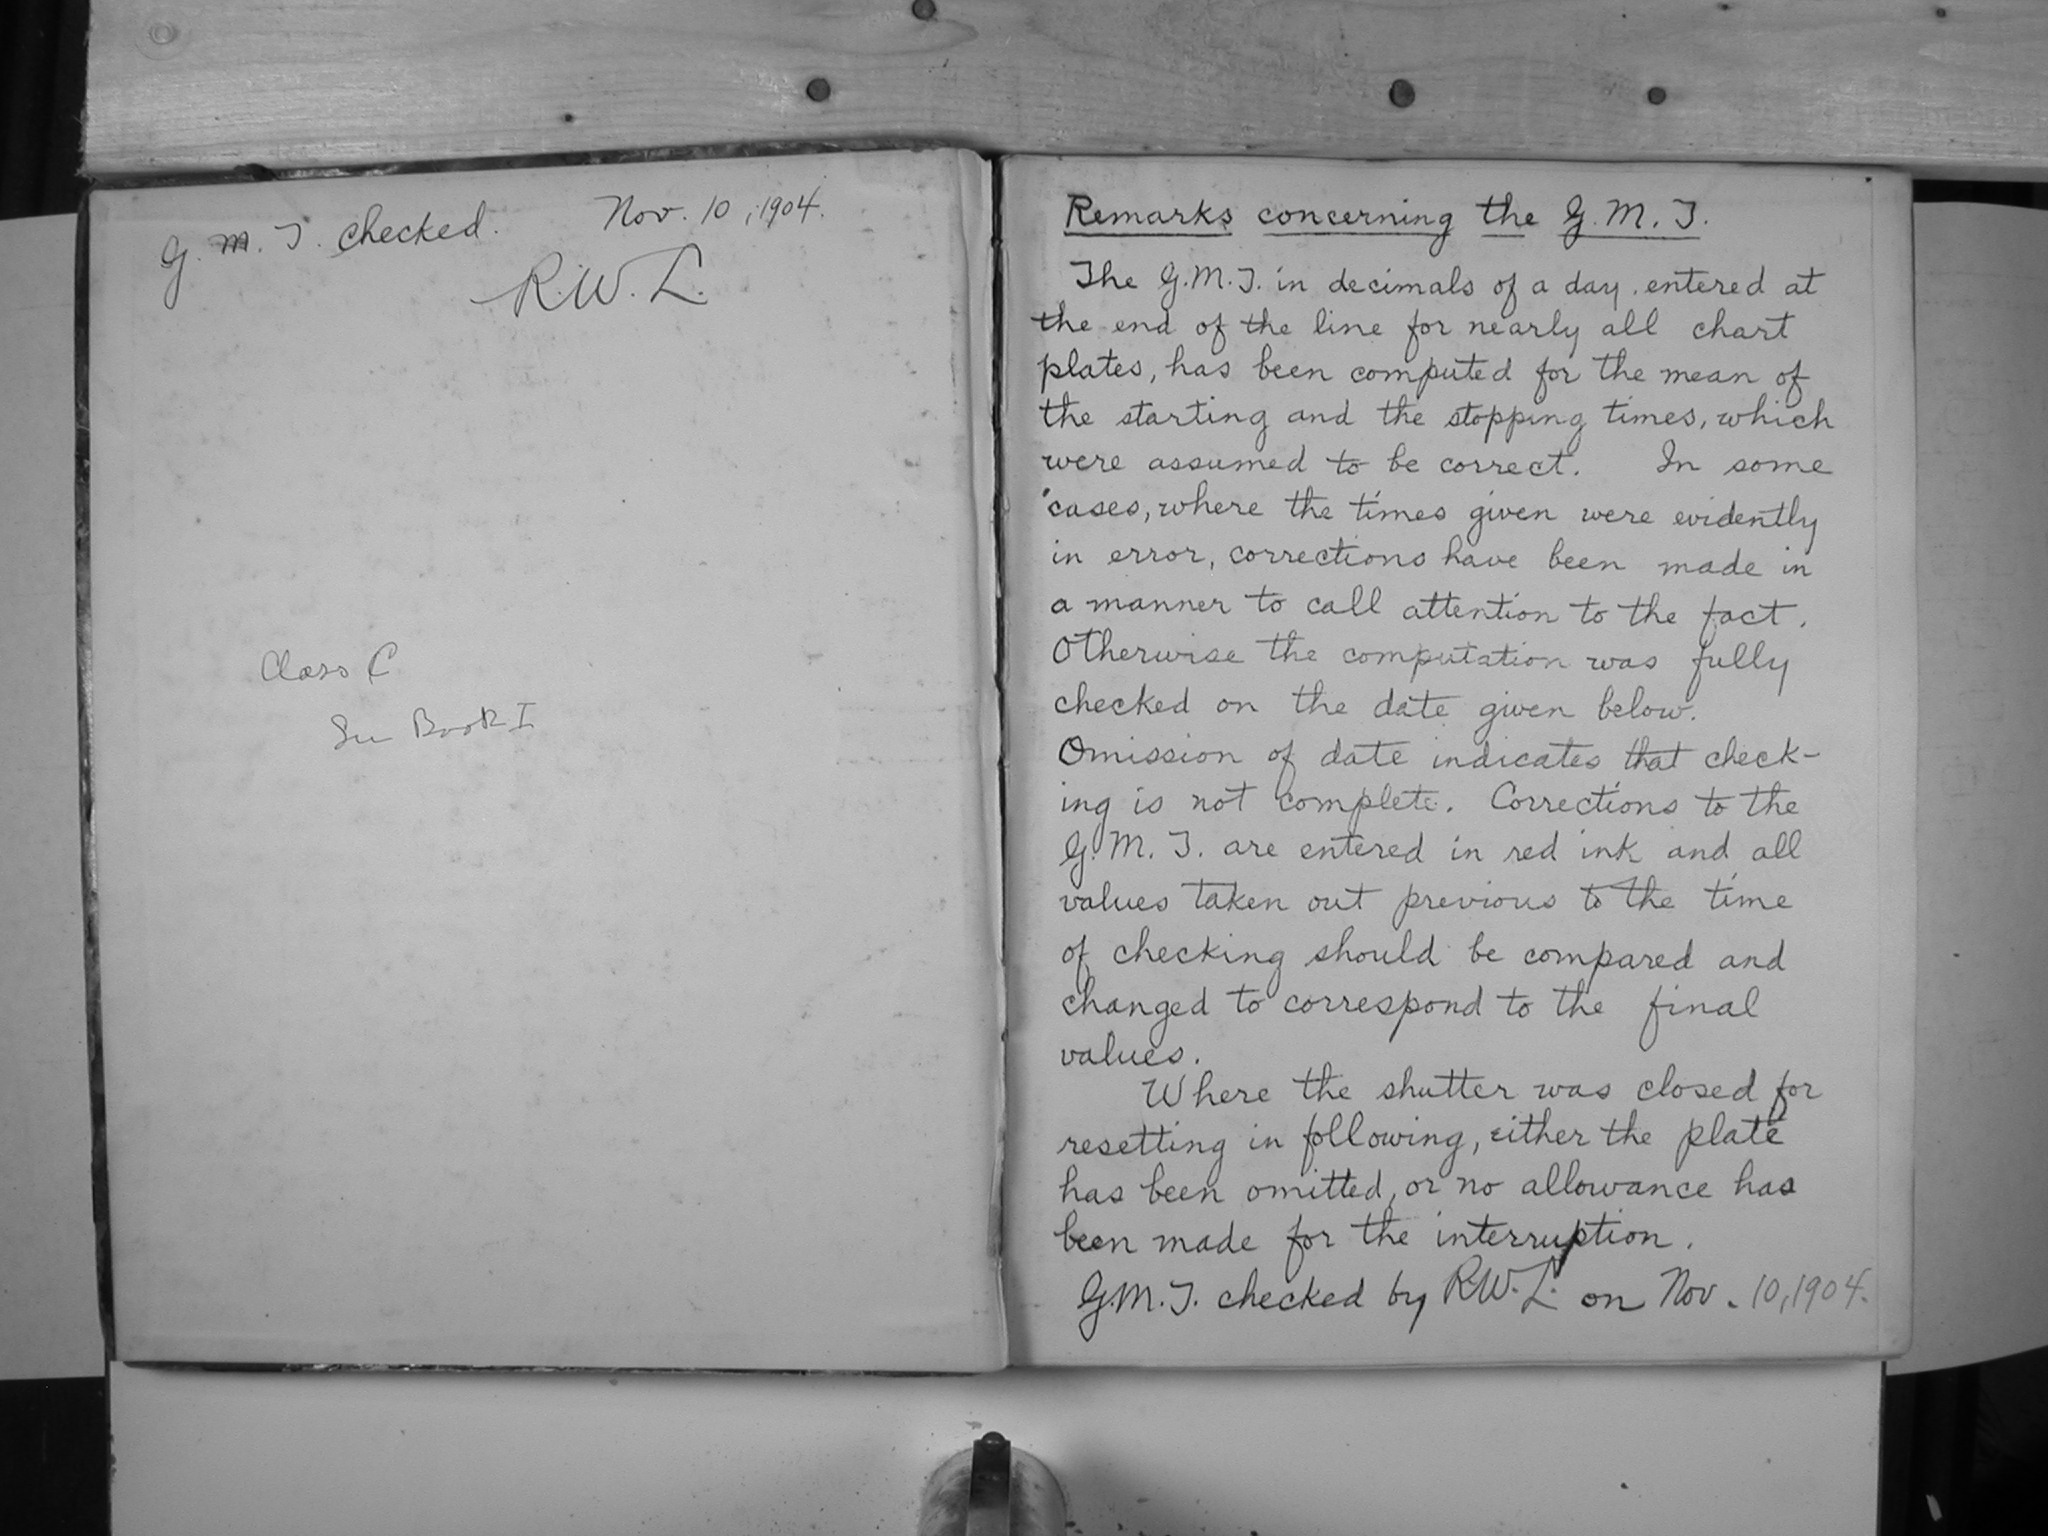 G. M. T. checked. Nov. 10, 1904.
R. W. L.
Class C
See Book I
Remarks concerning the G. M. T.
The G.M.T. in decimals of a day, entered at
the end of the line for nearly all chart
plates, has been computed for the mean of
the starting and the stopping times, which
were assumed to be correct. In some
cases, where the times given were evidently
in error, corrections have been made in
a manner to call attention to the fact.
Otherwise the computation was fully
checked on the date given below.
Omission of date indicates that check-
ing is not complete. Corrections to the
G. M. T. are entered in red ink and all
values taken out previous to the time
of checking should be compared and
changed to correspond to the final
values.
Where the shutter was closed for
resetting in following, either the plate
has been omitted, or no allowance has
been made for the interruption.
G.M.T. checked by R.W.L. on Nov. 10, 1904.